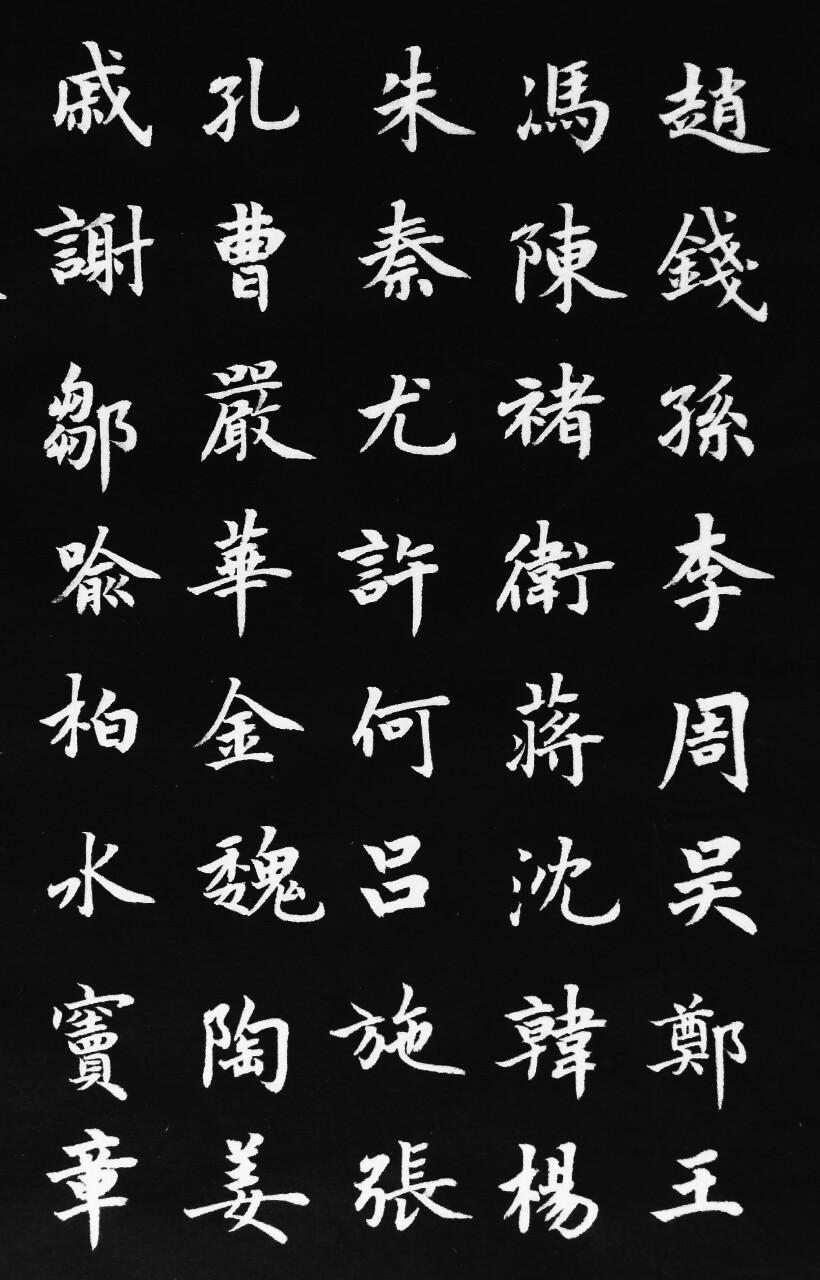 趙錢孫李周吴鄭王
馮陳褚衛蔣沈韓楊
朱秦尤許何吕施張
孔曹嚴華金魏陶姜
戚謝鄒喻柏水竇章